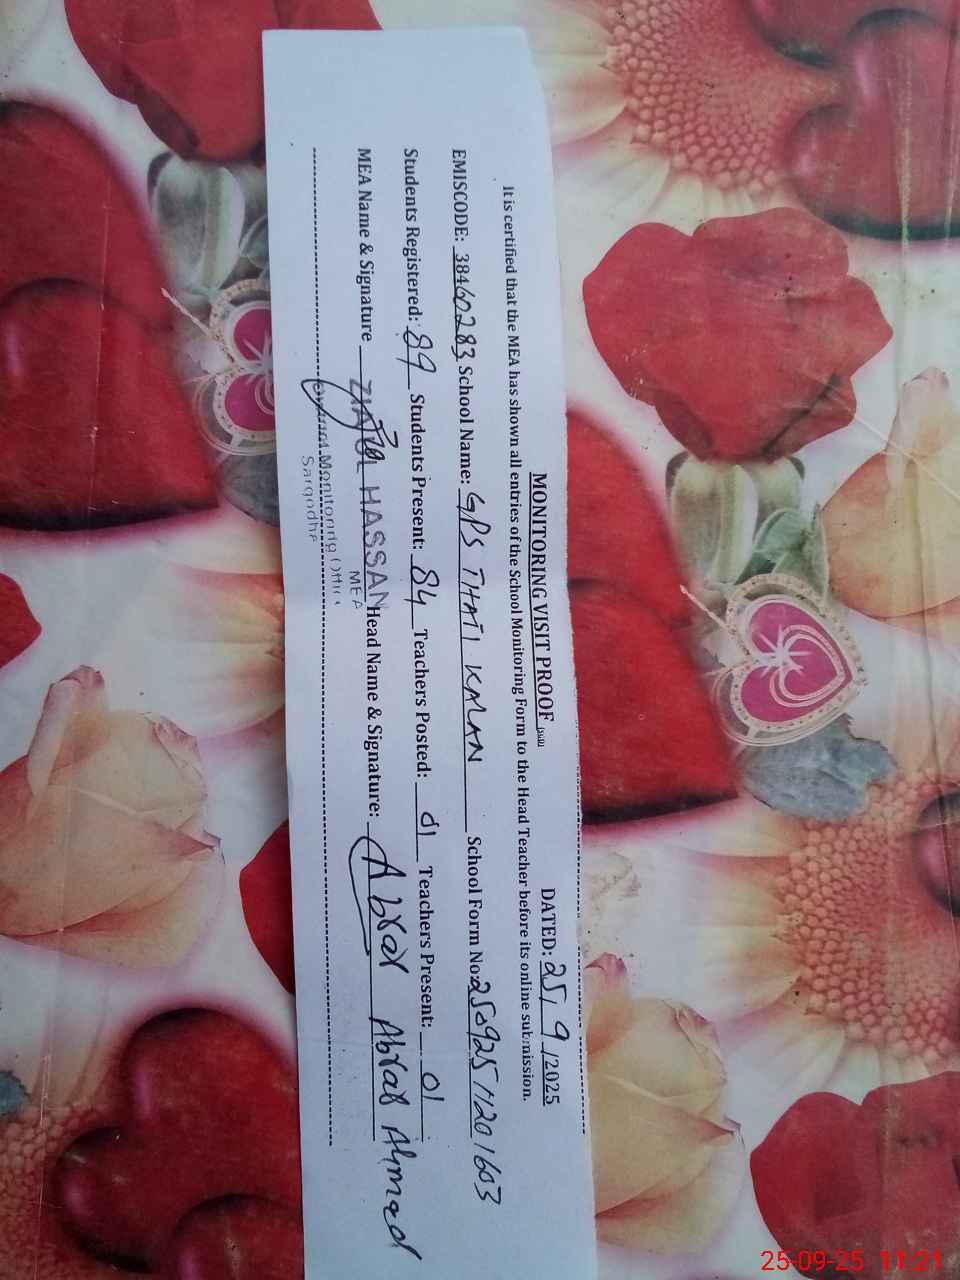 MONITORING VISIT PROOF
DATED: 25/9/2025
It is certified that the MEA has shown all entries of the School Monitoring Form to the Head Teacher before its online submission.
EMISCODE: 38460283 School Name: GPS THATI KALAN School Form No: 25092511201603
Students Registered: 89 Students Present: 84 Teachers Posted: 01 Teachers Present: 01
MEA Name & Signature HASSAN Head Name & Signature: Abrar Abrar Ahmad
MEA
Monitoring
Sargodha
25-09-25 11:21